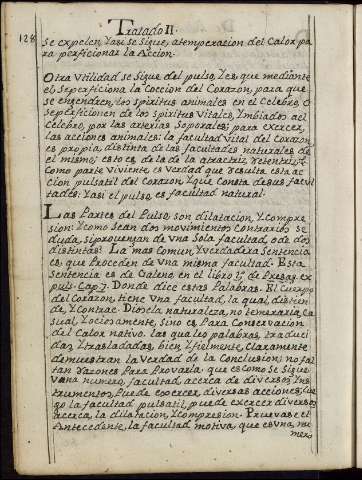 Tratado II.
128
se expelen, Yasi se sigue, atemperacion del Calor pa
ra perficionar la Accion.
Otra Vtilidad se sigue del pulso, Yes que mediante
el Se perficiona la Coccion del Corazon, para que
se engendren, los spiritus animales en el Celebro, o
se perficionen de los spiritus Vitales, Ymbiados ael
Celebro, por las arterias Soporales; para exercer,
las acciones animales: la facultad Vital del Corazon
es propia, distinta de las facultades naturales de
el mismo; esto es de la de la atractriz, Yretentriz
Como parte Viviente, es Verdad que resulta esta ac
cion pulsatil del Corazon, Yque Consta de sus facul
tades: Yasi el pulso, es facultad natural.
Las Partes del Pulso, son dilatacion, Ycompre
sion: Y como sean dos movimientos contrarios se
duda, si provengan de Vna Sola facultad, o de dos
distintas? La mas Comun, Y Verdadera Sentencia
es, que Proceden de Vna misma facultad. Esta
Sentencia es de Galeno en el libro 1º de Presag. ex
puls. Cap. 7. Donde dice estas Palabras. El Cuerpo
del Corazon, tiene Vna facultad, la qual, distien
de, Ycontrae. Diosela naturaleza, no temeraria, Ca
sual, Yociosamente, sino es Para Conservacion
del Calor nativo. las quales palabras, traduci
das, Ytrasladadas, bien Yfielmente, Claramente
demuestran la Verdad de la Conclusion: no fal
tan razones Para Provarla: que es como se Sigue
Vana numero, facultad acerca de diversos Yns
trumentos, Puede exercer, diversas acciones; lue
go la facultad pulsatil, puede exercer diversos
acerca, la dilatacion, Ycompresion. Pruevase el
Antecedente, la facultad motiva, que es Vna, nu
mero